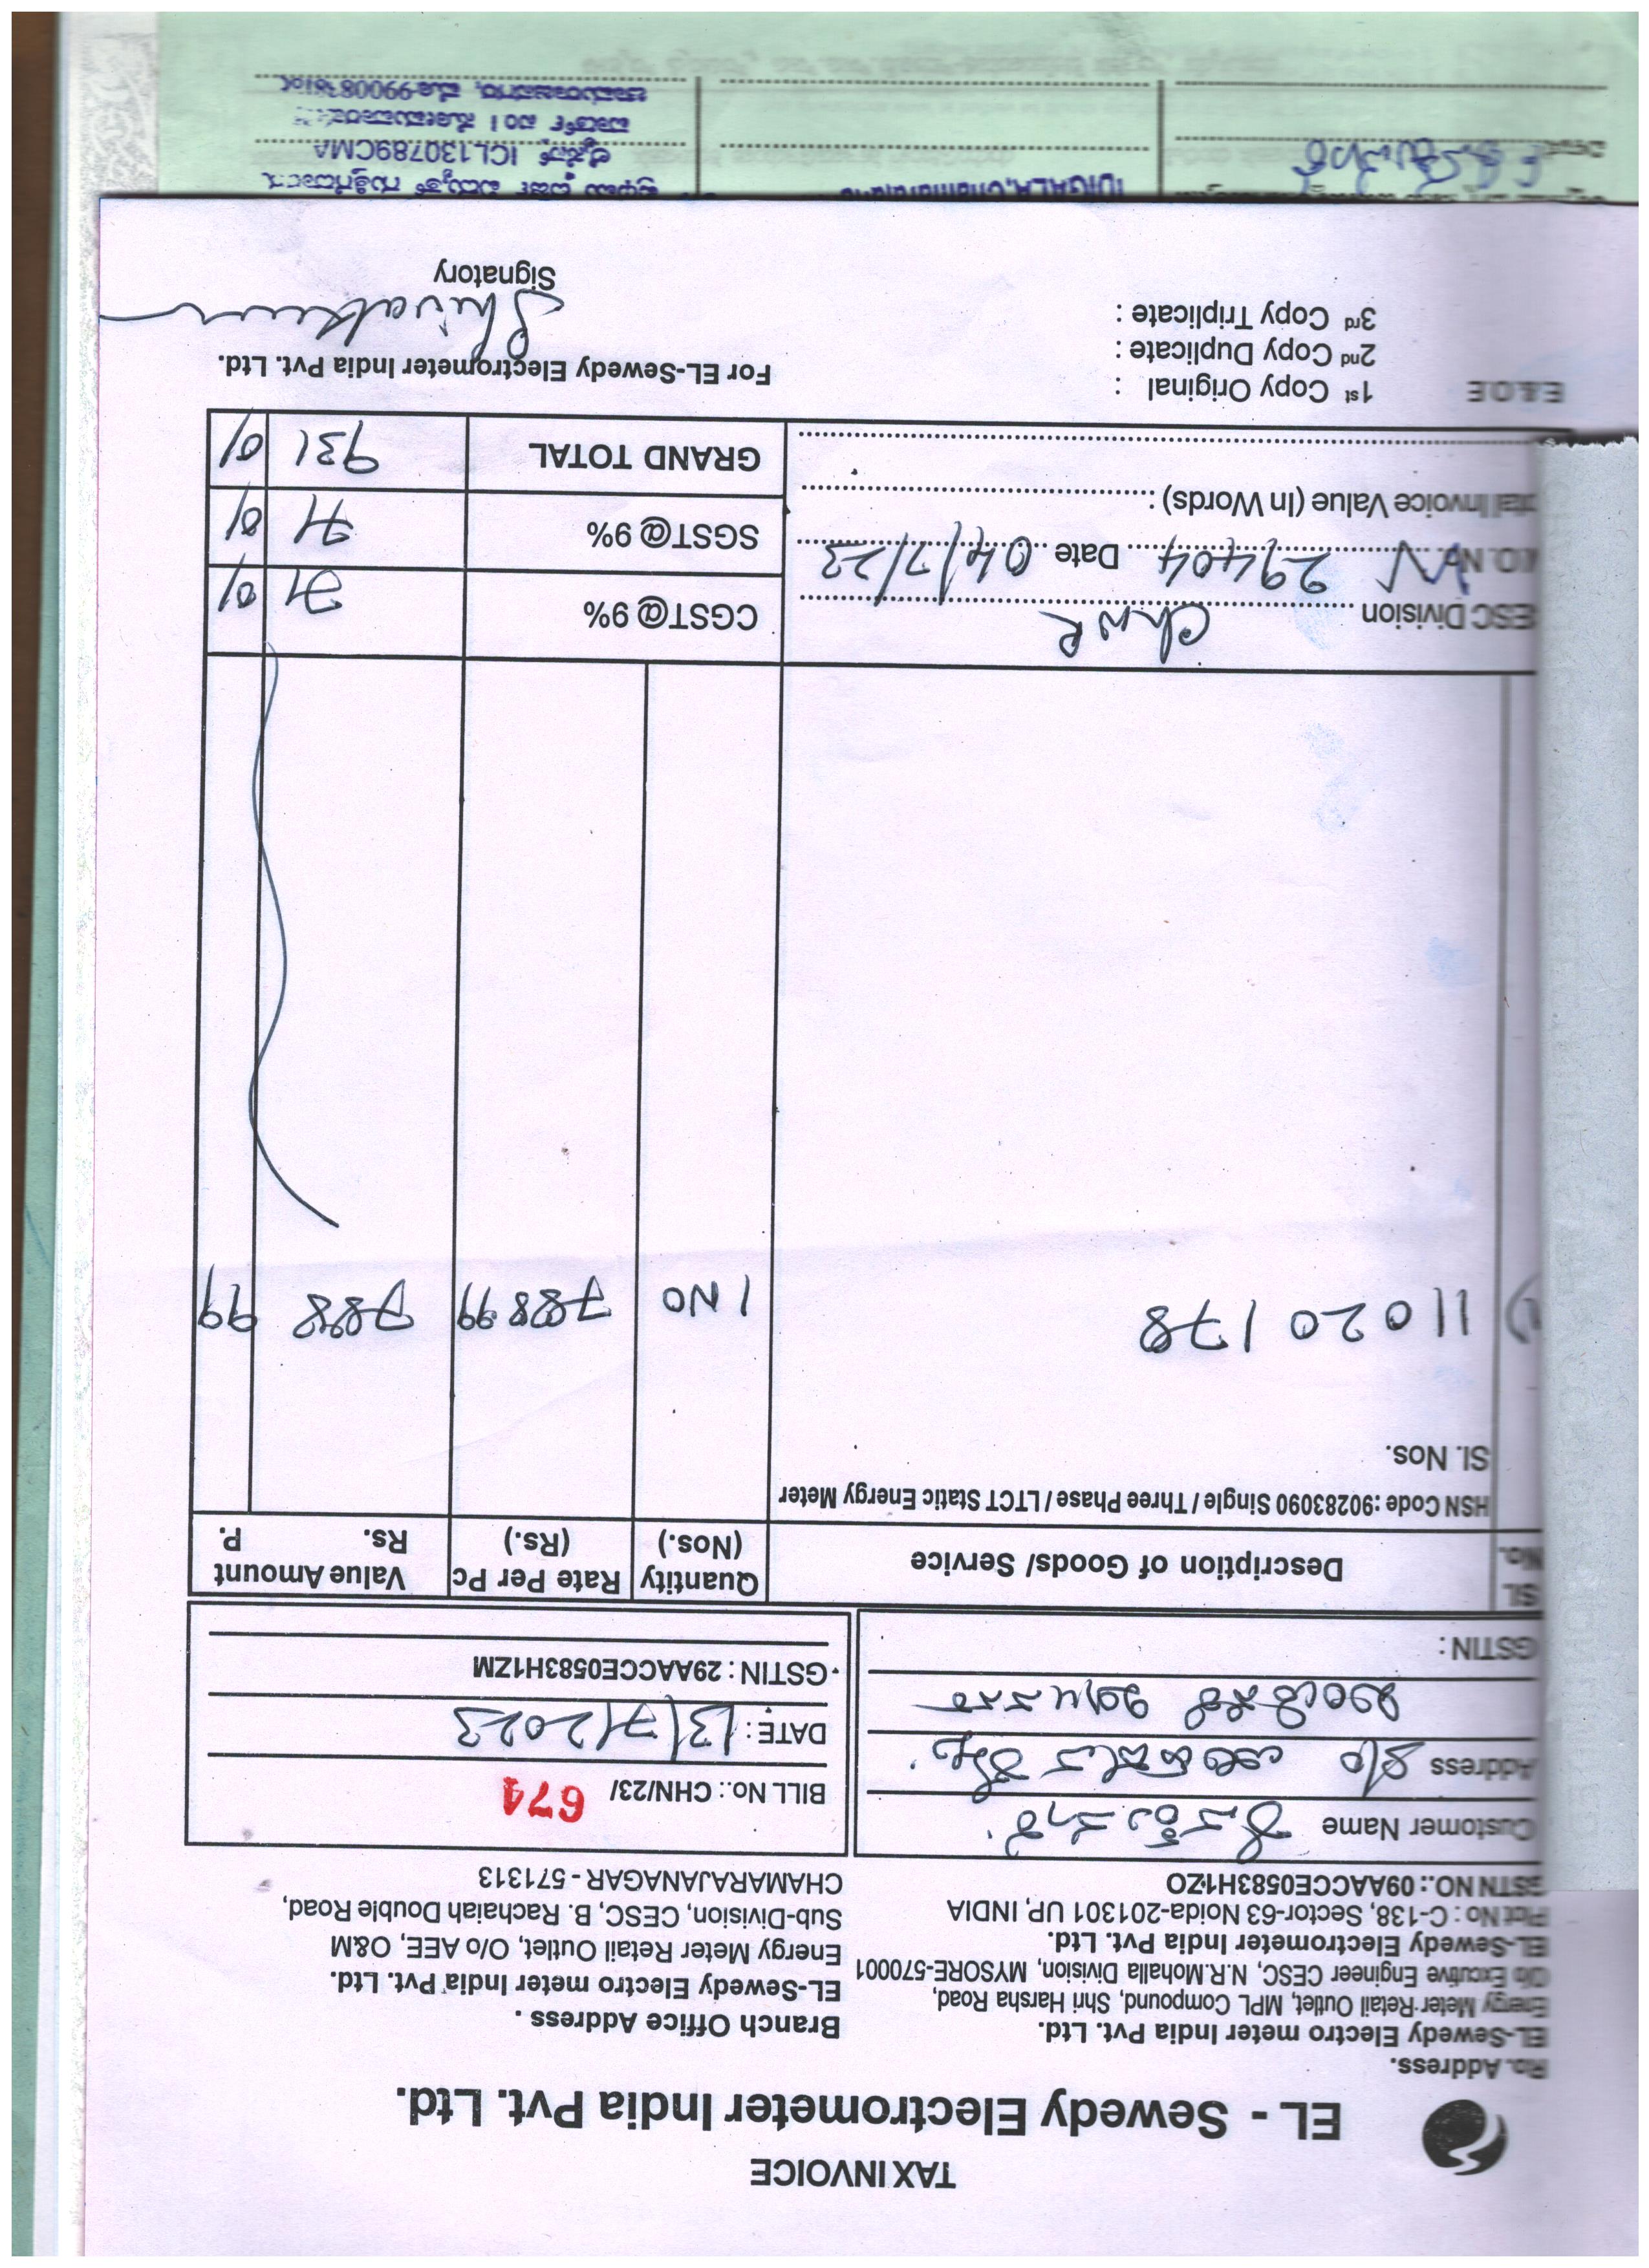 TAX INVOICE
EL - Sewedy Electrometer India Pvt. Ltd.
Ro. Address.
EL-Sewedy Electro meter India Pvt. Ltd.
Energy Meter Retail Outlet, MPL Compound, Shri Harsha Road,
C/o Excutive Engineer CESC, N.R.Mohalla Division, MYSORE-570001
EL-Sewedy Electrometer India Pvt. Ltd.
Plot No : C-138, Sector-63 Noida-201301 UP, INDIA
GSTN NO.: 09AACCE0583H1ZO
Branch Office Address .
EL-Sewedy Electro meter India Pvt. Ltd.
Energy Meter Retail Outlet, O/o AEE, O&M
Sub-Division, CESC, B. Rachaiah Double Road,
CHAMARAJANAGAR - 571313
Customer Name
Address S/o
GSTIN :
BILL No : CHN/23/ 671
DATE : 13/7/2023
GSTIN : 29AACCE0583H1ZM
Sl. No. Description of Goods/ Service Quantity (Nos.) Rate Per Pc (Rs.) Value Amount Rs. P.
HSN Code :90283090 Single / Three Phase / LTCT Static Energy Meter
Sl. Nos.
1) 11020178 1 NO 788 99 788 99
ESC Division ChNR
29404 Date 04/7/23
Invoice Value (In Words) :
CGST@ 9% 71 01
SGST@ 9% 71 01
GRAND TOTAL 931 01
E & O.E
1st Copy Original :
2nd Copy Duplicate :
3rd Copy Triplicate :
For EL-Sewedy Electrometer India Pvt. Ltd.
Shivakum
Signatory
ICL130789CMA